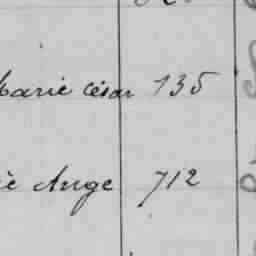 Marie César 135
è Ange 712